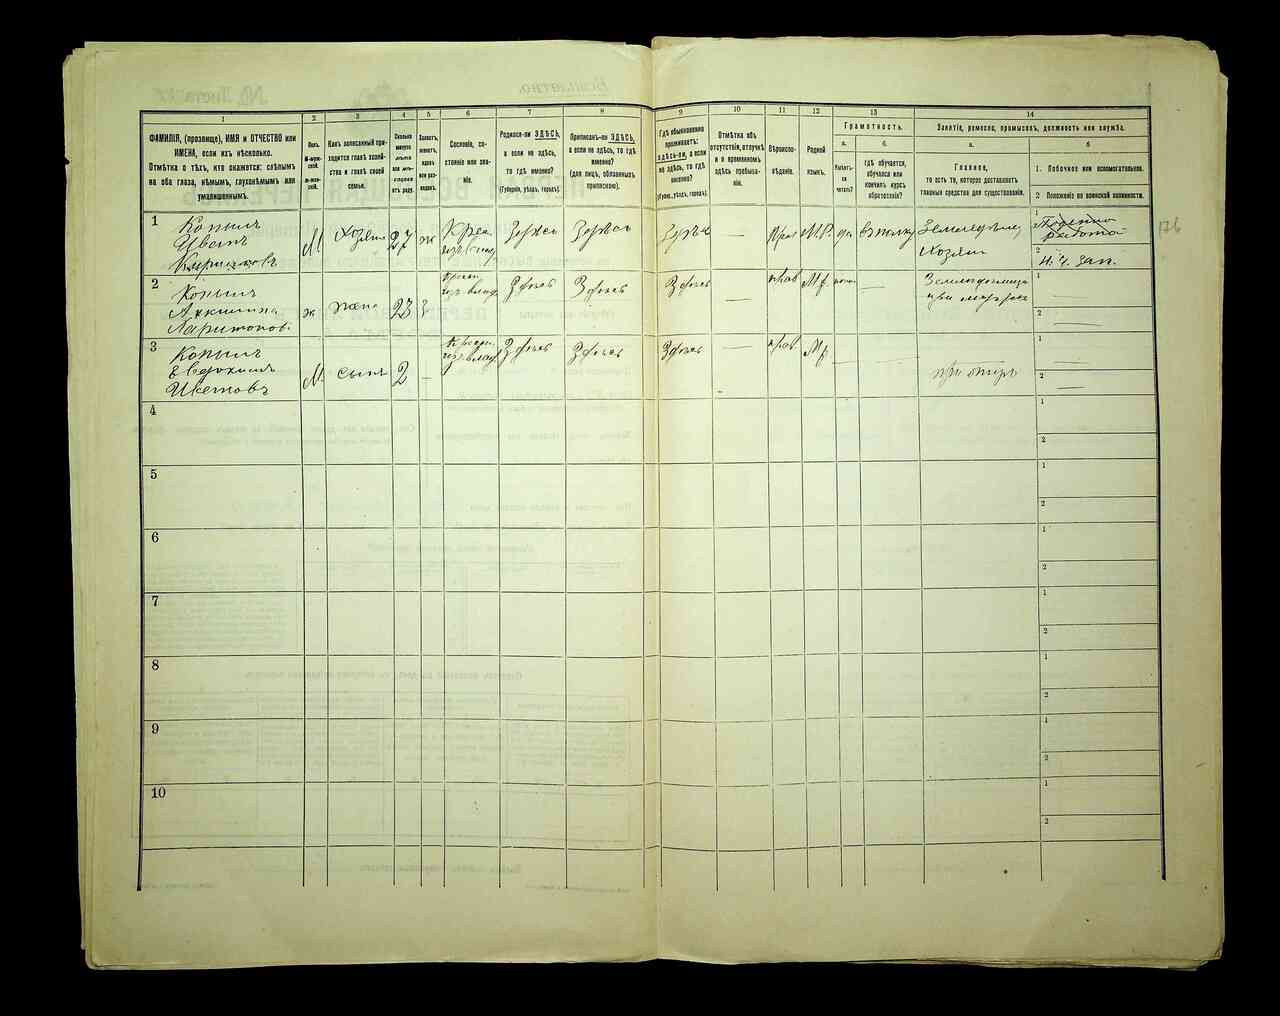 1
2
3
4
5
6
7
8
ФАМИЛІЯ, (прозвище), ИМЯ и ОТЧЕСТВО или
ИМЕНА, если ихъ нѣсколько.
Отмѣтка о тѣхъ, кто окажется: слѣпымъ
на оба глаза, нѣмымъ, глухонѣмымъ или
умалишеннымъ.
Полъ.
М-муж-
ской.
Ж-жен-
скій.
Какъ записанный при-
ходится главѣ хозяй-
ства и главѣ своей
семьи.
Сколько
минуло
лѣтъ
или мѣ-
сяцевъ
отъ роду.
Холостъ,
женатъ,
вдовъ
или раз-
веденъ.
Сословіе, со-
стояніе или зва-
ніе.
Родился-ли ЗДѢСЬ,
а если не здѣсь,
то гдѣ именно?
(Губернія, уѣздъ, городъ).
Приписанъ-ли ЗДѢСЬ,
а если не здѣсь, то гдѣ
именно?
(для лицъ, обязанныхъ
припискою).
9
10
11
12
13
14
Гдѣ обыкновенно
проживаетъ:
здѣсь-ли, а если
не здѣсь, то гдѣ
именно?
(Губерн., уѣздъ, городъ).
Отмѣтка объ
отсутствіи, отлучкѣ
и о временномъ
здѣсь пребыва-
ніи.
Вѣроиспо-
вѣданіе.
Родной
языкъ.
Грамотность.
а.
б.
Умѣетъ-
ли
читать?
гдѣ обучается,
обучался или
кончилъ курсъ
образованія?
Занятіе, ремесло, промыселъ, должность или служба.
а.
б
Главное,
то есть то, которое доставляетъ
главныя средства для существованія.
1. Побочное или вспомогательное.
2 Положеніе по воинской повинности.
1
Копылъ
Иванъ
М
Хозяинъ
27
ж
Крес.
Здѣсь
Здѣсь
Здѣсь
—
Прав
М.Р.
да
въ полку
Земледѣліе,
Хозяинъ
1
работа
2
Н. Ч. Зап.
176
2
Копылъ
ж
жена
23
З
Крест.
изъ влад.
Здѣсь
Здѣсь
Здѣсь
—
прав
М р
—
при мужѣ
1
—
2
—
3
Копылъ
Евдокимъ
М.
сынъ
2
—
Крест.
изъ влад.
Здѣсь
Здѣсь
Здѣсь
—
прав.
М р
—
—
при отцѣ
1
—
2
—
4
1
2
5
1
2
6
1
2
7
1
2
8
1
2
9
1
2
10
1
2